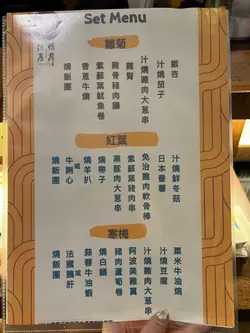 Set Menu
雛菊
銀杏
汁燒茄子
汁燒雞肉大蔥串
雞腎
雞骨豬肉腸
紫蘇葉魷魚卷
香蔥牛燒
燒飯團
紅葉
汁燒鮮冬菇
日本番薯
免治雞肉軟骨棒
紫蘇葉豬肉串
黑豚肉大蔥串
燒帶子
燒羊扒
或
牛胸心
燒飯團
寒梅
粟米牛油燒
汁燒豆腐
汁燒雞肉大蔥串
阿波美雞翼
豬肉蘆筍卷
燒白鱔
蒜蓉牛油蝦
或
法國鵝肝
燒飯團